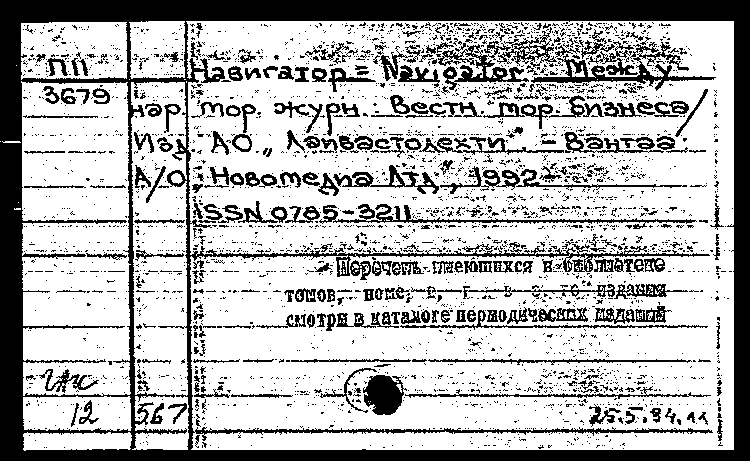 ПП
3679
Навигатор = Navigator. Между-
нар. тор. журн.: Вестн. тор. бизнеса /
Изд. АО „Ляйвастолехти". – Вантаа:
А/О „Новомедиа Лтд", 1992-
ISSN 0785-3211
Перечень имеющихся в библиотеке
томов, номе, в, г в э, го издания
смотри в каталоге периодических изданий
12 567
25.5.94.